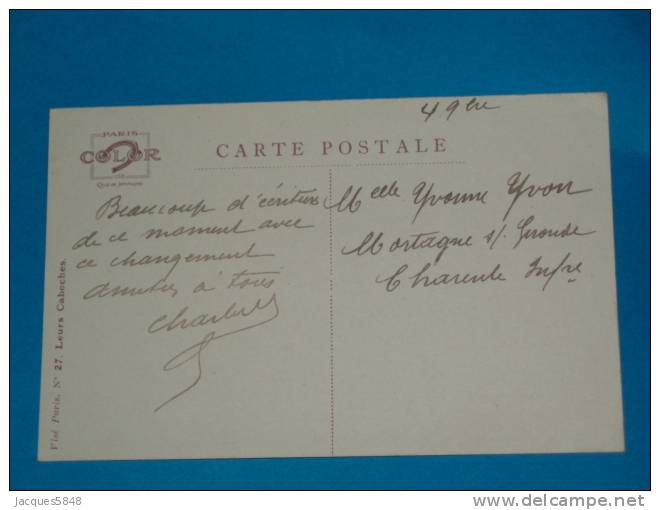 49ère
PARIS
COLOR
CARTE POSTALE
Beaucoup d'écriture
de ce moment avec
ce changement
à tous
Charles
Melle Yvonne Yvon
Mortagne s/. Gironde
Charente Infre
Visé Paris. No 27. Leurs Caboches.
Jacques5848
delcampe.net